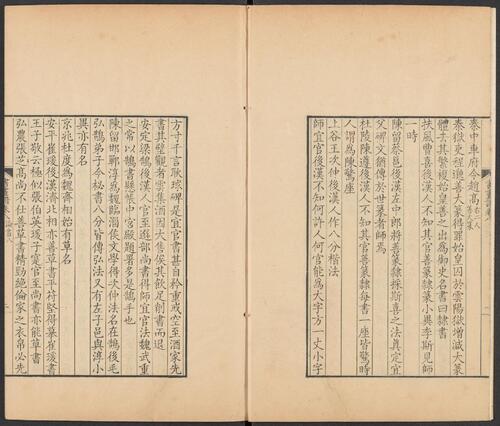 秦中車府令趙高右四人善大篆
秦獄吏程邈善大篆得罪始皇囚於雲陽獄增減大篆
體去其繁複始皇善之出為御史名書曰隸書
扶風曹喜後漢人不知其官善篆隸篆小異李斯見師
一時
陳留蔡邕後漢左中郎將善篆隸採斯喜之法真定宜
父碑文猶傳於世篆者師焉
杜陵陳遵後漢人不知其官善篆隸每書一座皆驚時
人謂為陳驚座
上谷王次仲後漢人作八分楷法
師宜官後漢不知何許人何官能為大字方一丈小字
方寸千言耿球碑是宜官書甚自矜重或空至酒家先
書其壁觀者雲集酒因大售俟其飲足削書而退
安定梁鵠後漢人官至選部尚書得師宜官法魏武重
之常以鵠書懸帳中宮殿題署多是鵠手也
陳留邯鄲淳為魏臨淄侯文學得次仲法名在鵠後毛
弘鵠弟子今秘書八分皆傳弘法又有左子邑與淳小
異亦有名
京兆杜度為魏齊相始有草名
安平崔瑗後漢濟北相亦善草書平苻堅得摹崔瑗書
王子敬云極似張伯英瑗子寔官至尚書亦能草書
弘農張芝高尚不仕善草書精勁絕倫家之衣帛必先